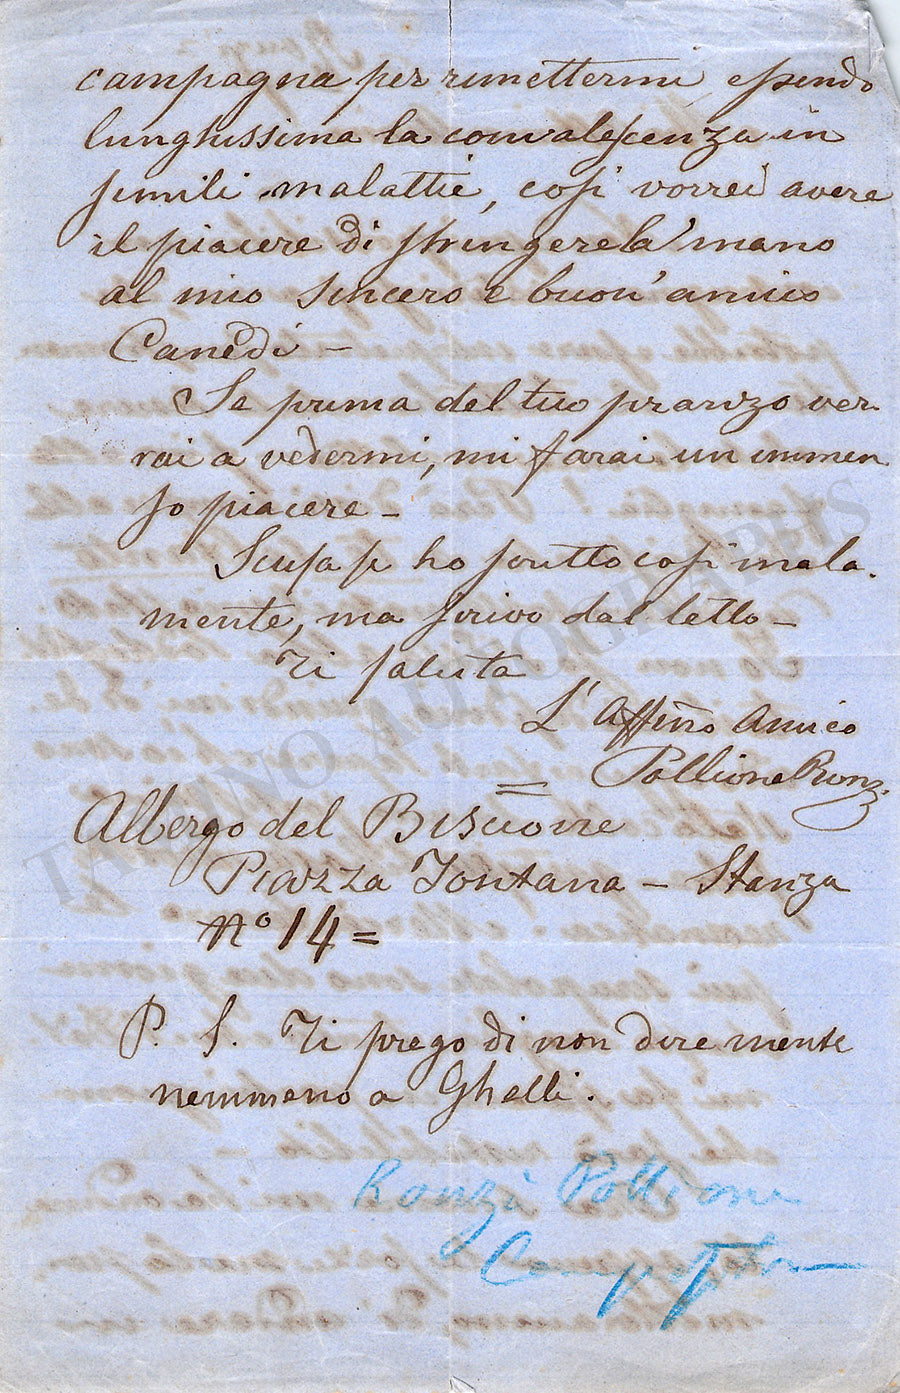 campagna per rimettermi, essendo
lunghissima la convalescenza in
simili malattie, così vorrei avere
il piacere di stringere la mano
al mio sincero e buon' amico
Canedi –
Se prima del tuo pranzo ver-
rai a vedermi, mi farai un immen
so piacere –
Scusa se ho scritto così mala-
mente, ma scrivo dal letto –
Ti saluta
L' Affmo Amico
Pollione Ronzi
Albergo del Biscione
Piazza Fontana – Stanza
No 14 =
P. S. Ti prego di non dire niente
nemmeno a Ghelli.
Ronzi Pollione
TAMINO AUTOGRAPHS